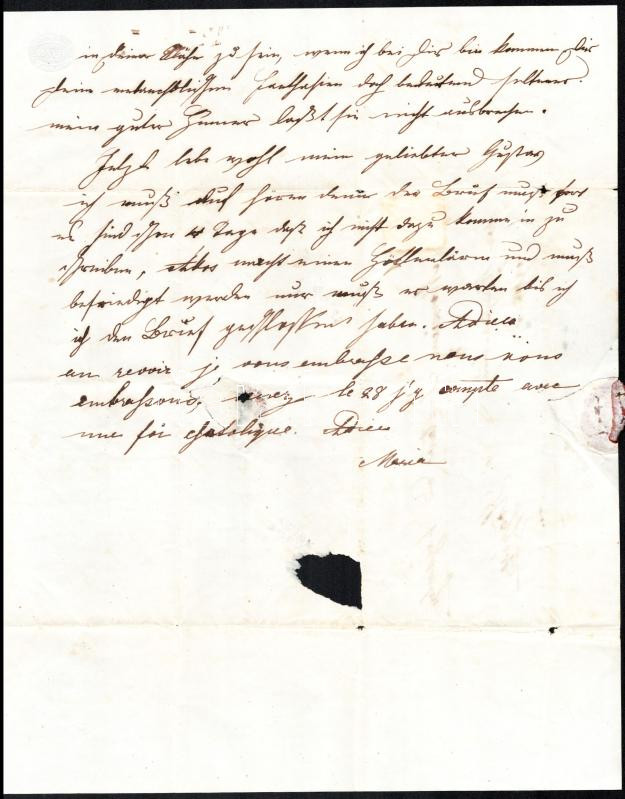 in deiner Nähe zu sein, wenn ich bei dir bin kommen dir
deine melancholischen Fantasien doch bedeutend seltener.
mein guter Humor laßt sie nicht ausbrechen.
Jetzt lebe wohl mein geliebter Gustav
ich muß auf hören denn der Brief muß fort
es sind schon 4 Tage daß ich nicht dazu komme in zu
schreiben, macht einen Höllenlärm und muß
befriedigt werden nur muß er warten bis ich
ich den Brief geschlossen haben. Adieu
au revoir je vous embrasse nous nous
embrassons, venez le 28 j'y compte avec
une foi chatolique. Adieu
Maria